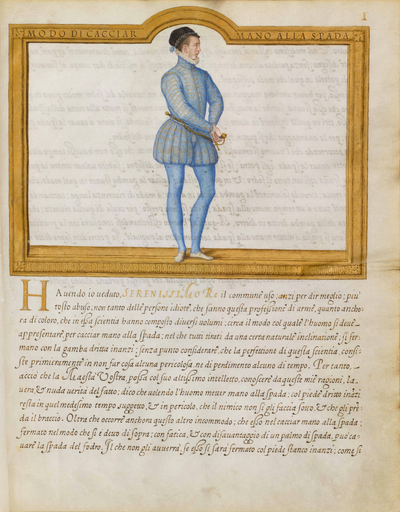 1
MODO DI CACCIAR MANO ALLA SPADA
HAuendo io ueduto, SERENISSIMO RE il commune uso; anzi per dir meglio; piu
tosto abuso, non tanto delle persone idiote, che fanno questa professione di arme, quanto ancho-
ra di coloro, che in essa scientia hanno composto diuersi uolumi; cerca il modo col quale l'huomo si deue
appresentare, per cacciar mano alla spada; nel che tutti tirati da una certa naturale inclinatione, si fer
mano con la gamba dritta inanzi; senza punto considerare, che la perfettione di questa scientia, consi-
ste primieramente in non far cosa alcuna pericolosa, ne di perdimento alcuno di tempo. Per tanto,
accio che la Maestà Vostra, possa col suo altissimo intelletto, conoscere da queste mie ragioni, la
uera & nuda uerità del fatto; dico che uolendo l'huomo metter mano alla spada, col piede dritto inanzi
resta in quel medesimo tempo suggetto, & in pericolo, che il nimico non si gli faccia sotto, & che gli prē
da il braccio. Oltra che occorre anchora questo altro incommodo; che esso nel cacciar mano alla spada;
fermato nel modo che si è detto di sopra; con fatica, & con disauantaggio di un palmo di spada, puo ca-
uare la spada del fodro. Il che non gli auuerrà se esso si sarà fermato col piede stanco inanzi; come si